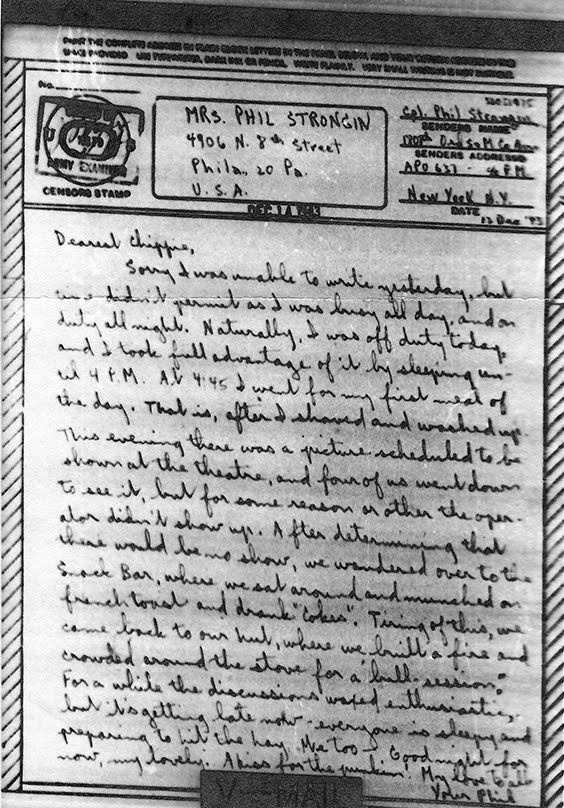 PRINT THE COMPLETE ADDRESS IN PLAIN BLOCK LETTERS IN THE PANEL BELOW, AND YOUR RETURN ADDRESS IN THE
SPACE PROVIDED. USE TYPEWRITER, DARK INK OR PENCIL. WRITE PLAINLY. VERY SMALL WRITING IS NOT SUITABLE.
No.
ARMY EXAMINER
CENSORS STAMP
MRS. PHIL STRONGIN
4906 N. 8th Street
Phila. 20 Pa.
U.S.A.
Cpl. Phil Strongin
SENDERS NAME
Ord
SENDERS ADDRESS
APO 637 - % P.M.
New York N.Y.
DATE
13 Dec '43
DEC 14 1943
Dearest Chippie,
Sorry I was unable to write yesterday, but
time didn't permit as I was busy all day, and on
duty all night. Naturally, I was off duty today,
and I took full advantage of it by sleeping un-
til 4 P.M. At 4:45 I went for my first meal of
the day. That is, after I shaved and washed up.
This evening there was a picture scheduled to be
shown at the theatre, and four of us went down
to see it, but for some reason or other the oper-
ator didn't show up. After determining that
there would be no show, we wandered over to the
Snack Bar, where we sat around and munched on
french toast and drank "cokes". Tiring of this, we
came back to our hut, where we built a fire and
crowded around the stove for a "bull-session."
For a while the discussions waxed enthusiastic,
but it's getting late now - everyone is sleepy and
preparing to hit the hay. Me too - Good night for
now, my lovely. A kiss for the punkin! My love to all
Your Phil
V-MAIL